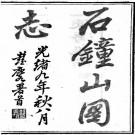 石鐘山圖
志
光緒九年秋八月
慶署首